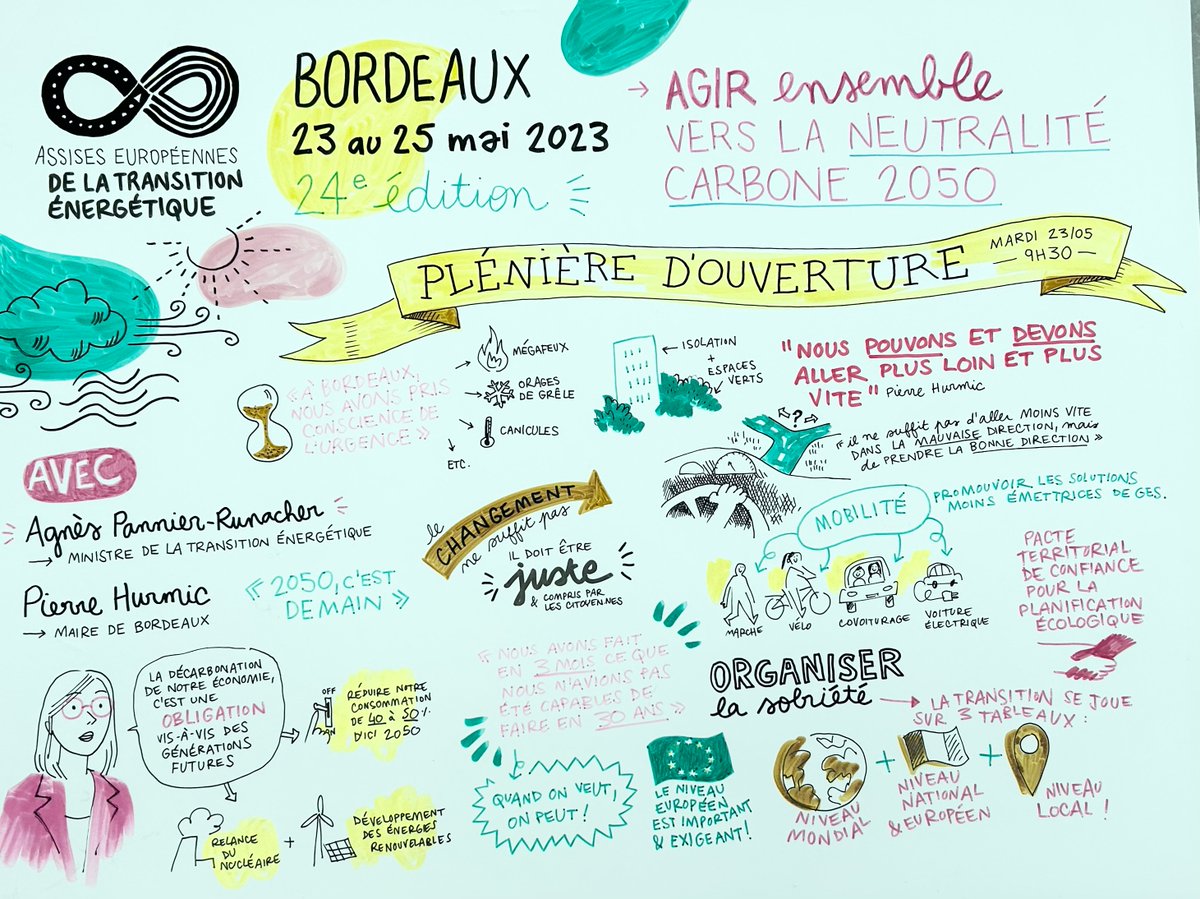 ASSISES EUROPÉENNES
DE LA TRANSITION
ÉNERGÉTIQUE
BORDEAUX
23 au 25 mai 2023
24e édition
→ AGIR ensemble
VERS LA NEUTRALITÉ
CARBONE 2050
PLÉNIÈRE D'OUVERTURE
MARDI 23/05
— 9H30 —
« À BORDEAUX,
NOUS AVONS PRIS
CONSCIENCE DE
L'URGENCE »
MÉGAFEUX
ORAGES
DE GRÊLE
CANICULES
ETC.
ISOLATION
+
ESPACES
VERTS
"NOUS POUVONS ET DEVONS
ALLER PLUS LOIN ET PLUS
VITE" Pierre Hurmic
?
« il ne suffit pas d'aller MOINS VITE
DANS LA MAUVAISE DIRECTION, mais
de PRENDRE LA BONNE DIRECTION »
AVEC
Agnès Pannier-Runacher
→ MINISTRE DE LA TRANSITION ÉNERGÉTIQUE
Pierre Hurmic
→ MAIRE DE BORDEAUX
« 2050, C'EST
DEMAIN »
le
CHANGEMENT
ne suffit pas
IL DOIT ÊTRE
juste
& COMPRIS PAR
LES CITOYENNES
MOBILITÉ
PROMOUVOIR LES SOLUTIONS
MOINS ÉMETTRICES DE GES.
MARCHE
VÉLO
COVOITURAGE
VOITURE
ÉLECTRIQUE
PACTE
TERRITORIAL
DE CONFIANCE
POUR LA
PLANIFICATION
ÉCOLOGIQUE
LA DÉCARBONATION
DE NOTRE ÉCONOMIE,
C'EST UNE
OBLIGATION
VIS-À-VIS DES
GÉNÉRATIONS
FUTURES
OFF
ON
RÉDUIRE NOTRE
CONSOMMATION
DE 40 à 50%
D'ICI 2050
RELANCE
DU
NUCLÉAIRE
+
DÉVELOPPEMENT
DES ÉNERGIES
RENOUVELABLES
« NOUS AVONS FAIT
EN 3 MOIS CE QUE
NOUS N'AVIONS PAS
ÉTÉ CAPABLES DE
FAIRE EN 30 ANS »
QUAND ON VEUT,
ON PEUT !
LE NIVEAU
EUROPÉEN
EST IMPORTANT
& EXIGEANT!
ORGANISER
la sobriété
→ LA TRANSITION SE JOUE
SUR 3 TABLEAUX :
NIVEAU
MONDIAL
+
NIVEAU
NATIONAL
& EUROPÉEN
+
NIVEAU
LOCAL !